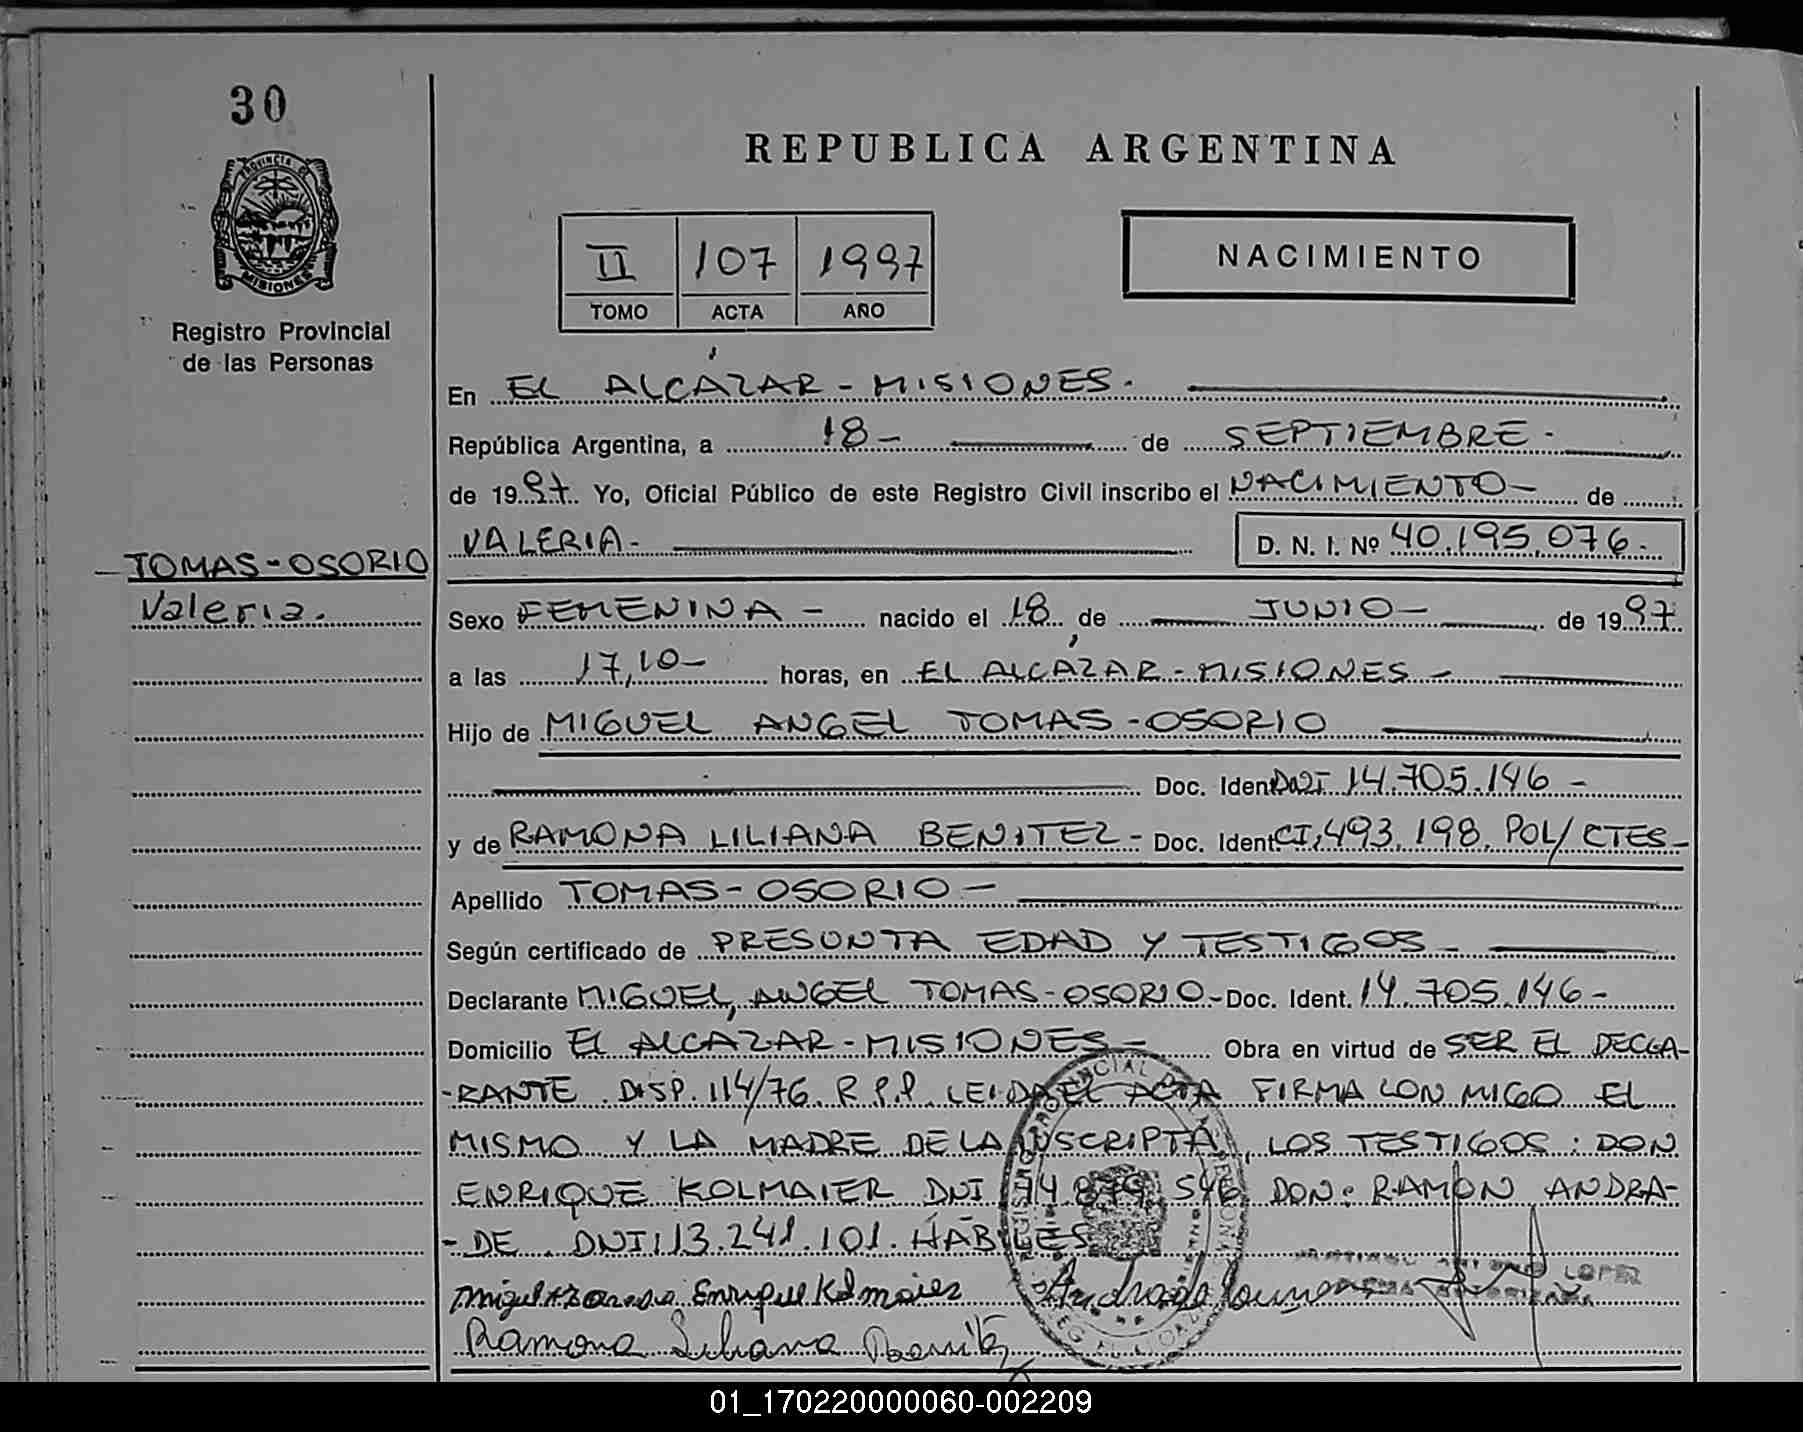 30
PROVINCIA DE
MISIONES
Registro Provincial
de las Personas
REPUBLICA ARGENTINA
II 107 1997
TOMO ACTA AÑO
NACIMIENTO
En EL ALCÁZAR - MISIONES.
República Argentina, a 18- de SEPTIEMBRE-
de 1997. Yo, Oficial Público de este Registro Civil inscribo el NACIMIENTO- de
VALERIA- D. N. I. Nº 40.195.076-
TOMAS-OSORIO
Valeria.
Sexo FEMENINA- nacido el 18 de JUNIO- de 1997.
a las 17,10- horas, en EL ALCÁZAR - MISIONES-
Hijo de MIGUEL ANGEL TOMAS-OSORIO
Doc. Ident. DNI 14.705.146-
y de RAMONA LILIANA BENITEZ- Doc. Ident. CI, 493.198. POL/CTES-
Apellido TOMAS-OSORIO-
Según certificado de PRESUNTA EDAD Y TESTIGOS-
Declarante MIGUEL ANGEL TOMAS-OSORIO- Doc. Ident. 14.705.146-
Domicilio EL ALCÁZAR-MISIONES- Obra en virtud de SER EL DECLA-
-RANTE. DISP. 114/76. R.P.P. LEIDA EL ACTA FIRMA CON MIGO EL
MISMO Y LA MADRE DE LA INSCRIPTA, LOS TESTIGOS: DON
ENRIQUE KOLMAIER DNI 14.879.546 DON: RAMÓN ANDRA-
-DE. DNI: 13.241.101. HÁBILES
Enrique Kolmaier Andrade
LOPEZ
Ramona Liliana Benitez
01_170220000060-002209